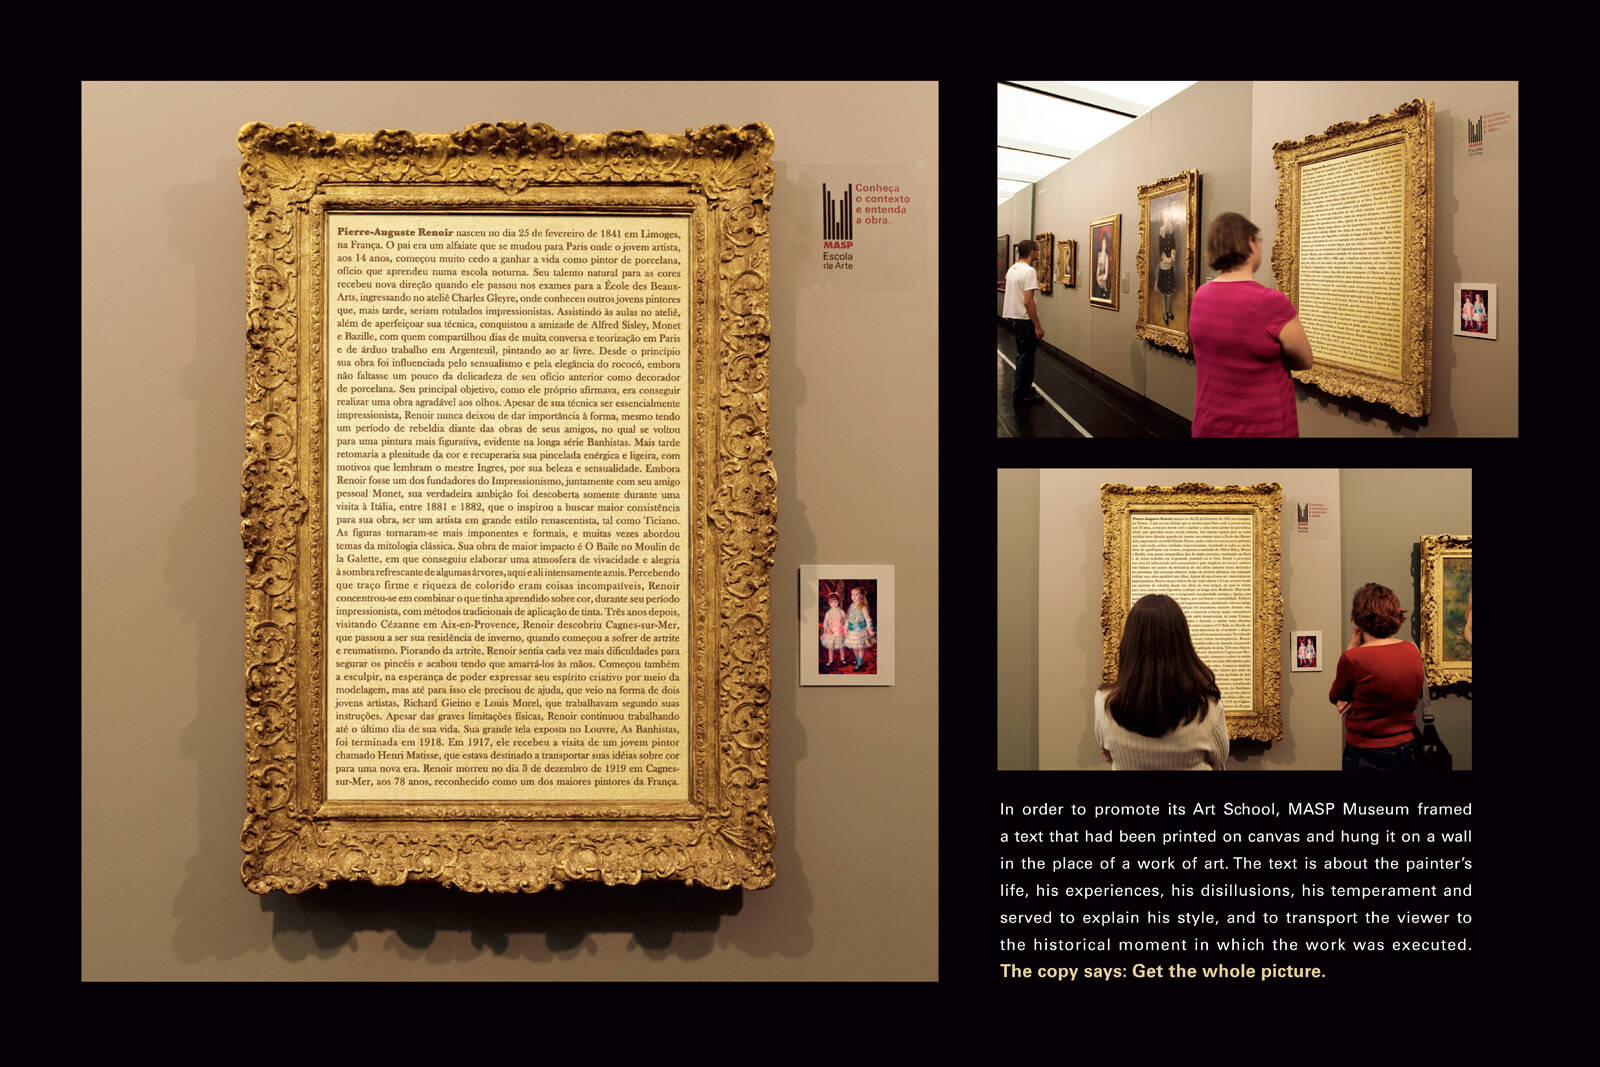 Pierre-Auguste Renoir nasceu no dia 25 de fevereiro de 1841 em Limoges,
na França. O pai era um alfaiate que se mudou para Paris onde o jovem artista,
aos 14 anos, começou muito cedo a ganhar a vida como pintor de porcelana,
ofício que aprendeu numa escola noturna. Seu talento natural para as cores
recebeu nova direção quando ele passou nos exames para a École des Beaux-
Arts, ingressando no ateliê Charles Gleyre, onde conheceu outros jovens pintores
que, mais tarde, seriam rotulados impressionistas. Assistindo às aulas no ateliê,
além de aperfeiçoar sua técnica, conquistou a amizade de Alfred Sisley, Monet
e Bazille, com quem compartilhou dias de muita conversa e teorização em Paris
e de árduo trabalho em Argenteuil, pintando ao ar livre. Desde o princípio
sua obra foi influenciada pelo sensualismo e pela elegância do rococó, embora
não faltasse um pouco da delicadeza de seu ofício anterior como decorador
de porcelana. Seu principal objetivo, como ele próprio afirmava, era conseguir
realizar uma obra agradável aos olhos. Apesar de sua técnica ser essencialmente
impressionista, Renoir nunca deixou de dar importância à forma, mesmo tendo
um período de rebeldia diante das obras de seus amigos, no qual se voltou
para uma pintura mais figurativa, evidente na longa série Banhistas. Mais tarde
retomaria a plenitude da cor e recuperaria sua pincelada enérgica e ligeira, com
motivos que lembram o mestre Ingres, por sua beleza e sensualidade. Embora
Renoir fosse um dos fundadores do Impressionismo, juntamente com seu amigo
pessoal Monet, sua verdadeira ambição foi descoberta somente durante uma
visita à Itália, entre 1881 e 1882, que o inspirou a buscar maior consistência
para sua obra, ser um artista em grande estilo renascentista, tal como Ticiano.
As figuras tornaram-se mais imponentes e formais, e muitas vezes abordou
temas da mitologia clássica. Sua obra de maior impacto é O Baile no Moulin de
la Galette, em que conseguiu elaborar uma atmosfera de vivacidade e alegria
à sombra refrescante de algumas árvores, aqui e ali intensamente azuis. Percebendo
que traço firme e riqueza de colorido eram coisas incompatíveis, Renoir
concentrou-se em combinar o que tinha aprendido sobre cor, durante seu período
impressionista, com métodos tradicionais de aplicação de tinta. Três anos depois,
visitando Cézanne em Aix-en-Provence, Renoir descobriu Cagnes-sur-Mer,
que passou a ser sua residência de inverno, quando começou a sofrer de artrite
e reumatismo. Piorando da artrite, Renoir sentia cada vez mais dificuldades para
segurar os pincéis e acabou tendo que amarrá-los às mãos. Começou também
a esculpir, na esperança de poder expressar seu espírito criativo por meio da
modelagem, mas até para isso ele precisou de ajuda, que veio na forma de dois
jovens artistas, Richard Gieino e Louis Morel, que trabalhavam segundo suas
instruções. Apesar das graves limitações físicas, Renoir continuou trabalhando
até o último dia de sua vida. Sua grande tela exposta no Louvre, As Banhistas,
foi terminada em 1918. Em 1917, ele recebeu a visita de um jovem pintor
chamado Henri Matisse, que estava destinado a transportar suas idéias sobre cor
para uma nova era. Renoir morreu no dia 3 de dezembro de 1919 em Cagnes-
sur-Mer, aos 78 anos, reconhecido como um dos maiores pintores da França.
Conheça
o contexto
e entenda
a obra.
MASP
Escola
de Arte
In order to promote its Art School, MASP Museum framed
a text that had been printed on canvas and hung it on a wall
in the place of a work of art. The text is about the painter's
life, his experiences, his disillusions, his temperament and
served to explain his style, and to transport the viewer to
the historical moment in which the work was executed.
The copy says: Get the whole picture.